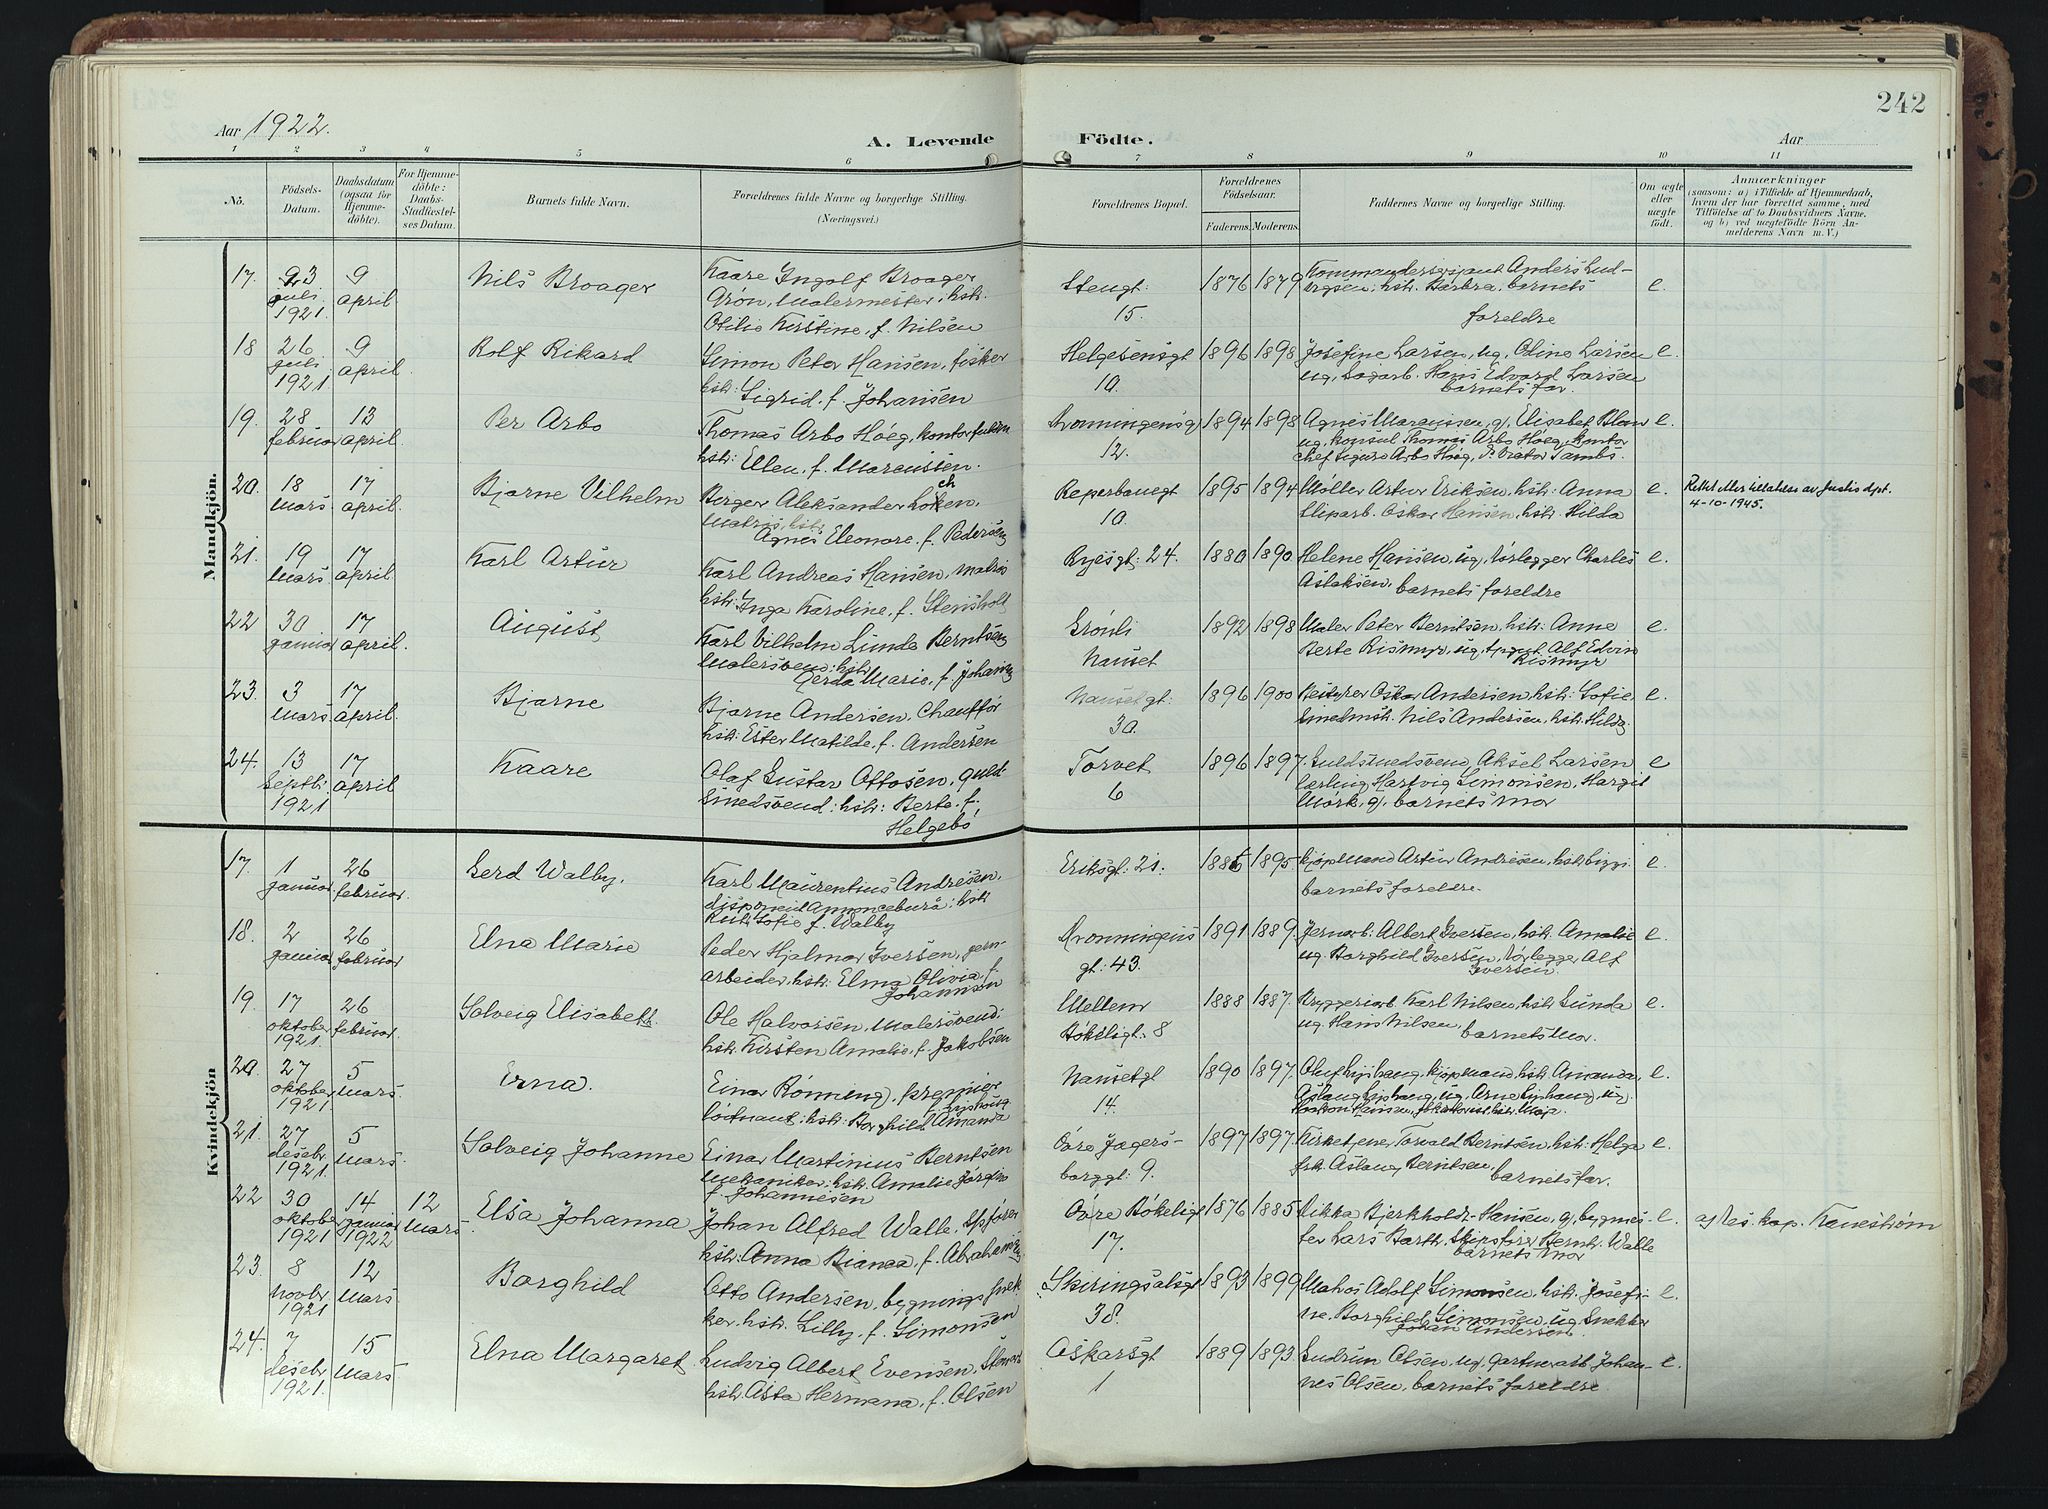 242
Aar 1922.
A. Levende Födte.
Aar
1 2 3 4 5 6 7 8 9 10 11
No.
Födsels-Datum.
Daabsdatum (ogsaa for Hjemmedöbte).
For Hjemmedöbte: Daabs-Stadfæstelses Datum.
Barnets fulde Navn.
Forældrenes fulde Navne og borgerlige Stilling.
(Næringsvei.)
Forældrenes Bopæl.
Forældrenes Födselsaar.
Faderens. Moderens.
Faddernes Navne og borgerlige Stilling.
Om ægte eller uægte født.
Anmærkninger
(saasom: a) i Tilfælde af Hjemmedaab, hvem der har forrettet samme, med Tilföielse af to Daabsvidners Navne, og b) ved uægtefödte Börn Anmelderens Navn m. V.)
Mandkjön.
17. 23 juli 1921. 9 april Nils Broager
Kaare Ingolf Broager
Grön, Malermester, hstr.
Otilie Kirstine, f. Nilsen
Stengt: 15. 1876 1879
Anders Lud-
hstr. Barbra, barnets
foreldre e.
18 26 juli 1921 9 april. Rolf Rikard
Simon Peter Hansen, fisker
hstr: Sigrid. f. Johansen
Helgesensgt 10. 1896 1898
Josefine Larsen, ug, Oline Larsen
ug, Sagarb. Hans Edvard Larsen
barnets far e.
19. 28 februar 13 april. Per Arbo
Thomas Arbo Höeg, kontorfuldm
hstr: Ellen, f. Marcussen.
Dronningensg 12. 1894 1898
Agnes Marcussen, g, Elisabet Blom
ug, konsul Thomas Arbo Höeg, kontor
chef Sigurd Arbo Höeg, Tambs. e.
20. 18 Mars 17 april. Bjarne Vilhelm
Birger Aleksander Loken, ch
Matros, hstr
Agnes Eleonore. f. Pedersen
Reperbanegt 10. 1895 1894
Möller Artur Eriksen, hstr: Anna
Sliparb. Oskar Hansen, hstr. Hilda e.
Rettet efter tillatelse av Justis dpt.
4-10-1945.
21. 19 Mars 17 april. Karl Artur
Karl Andreas Hansen, matros
hstr: Inga Karoline, f. Stensholt
Ryesgt: 24. 1880 1890
Helene Hansen, ug, rörlegger Charles
Aslaksen, barnets foreldre e.
22 30 januar 17 april. August
Karl Vilhelm Lunde Berntsen
Malersvend: hstr
Gerda Marie, f. Johansen
Grönli Nanset 1892 1898
Maler Peter Berntsen, hstr: Anne
Berte Rismyr, ug, Alf Edvin
Rismyr e.
23. 3 Mars 17 april. Bjarne
Bjarne Andersen, Chaufför
hstr: Ester Matilde, f. Andersen
Nansetgt: 30. 1896 1900
Oskar Andersen, hstr: Sofie
Nils Andersen, hstr: Hilda e.
24. 13 Septb. 1921 17 april Kaare
Olaf Gustav Ottosen, guld-
smedsvend: hstr: Berte. f.
Helgebö
Torvet 6 1896 1897.
Guldsmedsvend Aksel Larsen
lærling Hartvig Simonsen, Margit
Mörk, g, barnets mor e
Kvindekjön
17. 1 januar. 26 februar. Gerd Walby.
Karl Maurentius Andresen,
disponent Annonceburå: hstr
Rut Sofie f. Walby
Eriksgt: 21. 1885 1895
Kjöpmand Artur Andresen, hstr
barnets foreldre. e.
18. 2 januar 26 februar Elna Marie
Peder Hjalmar Iversen, jern-
arbeider, hstr: Elma Olivia, f.
Johannsen
Dronningens gt: 43. 1891 1889
Jernarb: Albert Iversen, hstr: Amalie
ug. Borghild Iversen, rörlegger Alf
Iversen. e.
19. 17 oktober 1921. 26 februar. Solveig Elisabeth.
Ole Halvorsen, Malersvend:
hstr: Kirsten Amalie, f. Jakobsen
Mellem Bökeligt: 8 1888 1887.
Bryggeriarb. Karl Nilsen, hstr Gunda
ug. Hans Nilsen, barnets Mor. e.
20. 27 oktober 1921. 5 Mars. Erna.
Einar Rönning, premier
löitnant: hstr: Borghild Amanda
Nansetgt 14. 1890 1897.
kjöpmand, hstr. Amanda,
hstr. Maja. e.
21. 27 desebr. 1921 5 Mars. Solveig Johanne
Einar Martinius Berntsen
Mekaniker: hstr. Amalie Jörgine
f. Johannesen
Övre Jegers-
borggt: 9. 1897 1897.
Kirketjener Torvald Berntsen, hstr: Helga
frk. Aslaug Berntsen,
barnets far. e.
22 30 oktober 1921 14 januar 1922 12 Mars. Elsa Johanna
Johan Alfred Walle, Spförer
hstr: Anna Bianca, f. Abrahamsen
Övre Bökeligt 17. 1876 1885
Rikka Bjerkholdt-Hansen, g, bygmes-
ter Lars Barth, Skipsförer Bernh. Walle
barnets mor e. a) Res. kap. Kaneström
23. 8 novbr. 1921 12 Mars. Borghild
Otto Andersen, bygningssnek
ker. hstr. Lilly, f. Simonsen
Skiringsalsgt 38. 1893 1899
Matros Adolf Simonsen, hstr. Josefi-
ne, Borghild Simonsen, ug, Snekker
Johan Andersen. e.
24. 7 desebr. 1921. 15 Mars Elna Margaret
Ludvig Albert Evensen,
hstr: Asta Hermana, f. Olsen
Oskarsgt 1 1889 1893.
Gudrun Olsen, ug, gartnerarb Johan-
nes Olsen, barnets foreldre e.